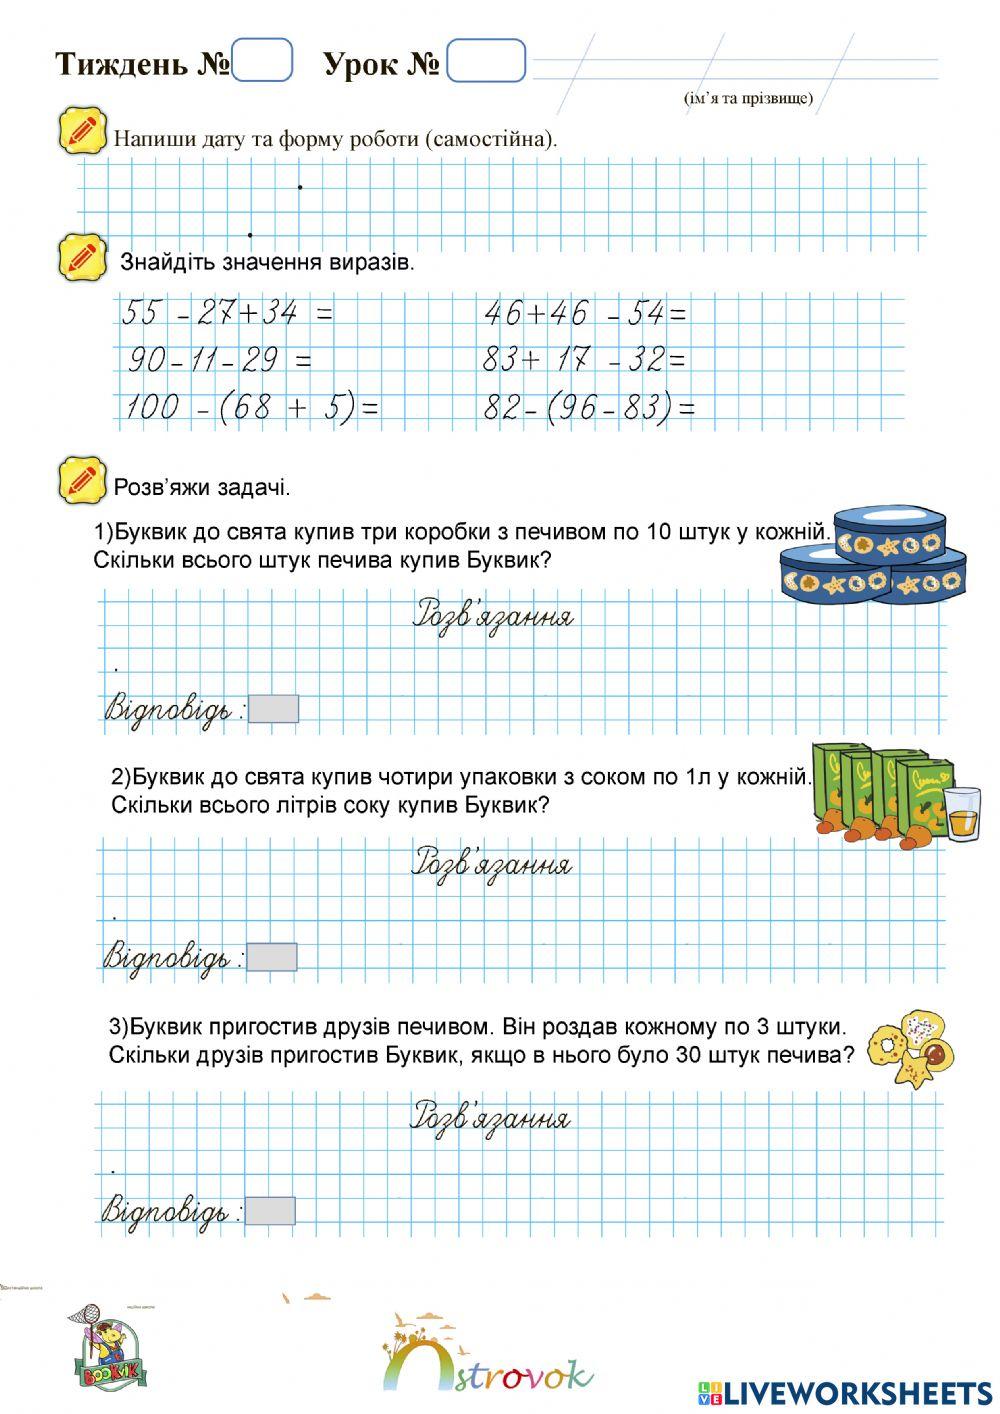 Тиждень № Урок №
(ім’я та прізвище)
Напиши дату та форму роботи (самостійна).
Знайдіть значення виразів.
55 - 27 + 34 = 46 + 46 - 54 =
90 - 11 - 29 = 83 + 17 - 32 =
100 - (68 + 5) = 82 - (96 - 83) =
Розв’яжи задачі.
1)Буквик до свята купив три коробки з печивом по 10 штук у кожній.
Скільки всього штук печива купив Буквик?
Розв’язання
.
Відповідь :
2)Буквик до свята купив чотири упаковки з соком по 1л у кожній.
Скільки всього літрів соку купив Буквик?
Розв’язання
.
Відповідь :
3)Буквик пригостив друзів печивом. Він роздав кожному по 3 штуки.
Скільки друзів пригостив Буквик, якщо в нього було 30 штук печива?
Розв’язання
.
Відповідь :
BOOKVIK
Ostrovok
LIVEWORKSHEETS